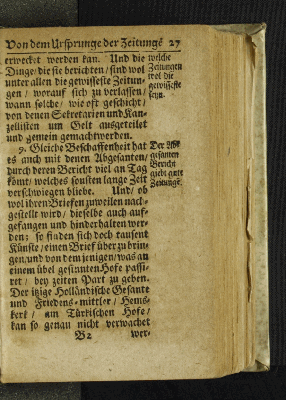 Von dem Ursprunge der Zeitungē 27
erweckt werden kan. Und die
Dinge/ die sie berichten/ sind wol
unter allen die gewisseste Zeitun-
gen / worauf sich zu verlassen/
wann solche/ wie oft geschicht/
von denen Sekretarien und Kan-
zellisten um Gelt ausgeteilet
und gemein gemacht werden.
welche
Zeitungen
wol die
gewisseste
seyn.
9. Gleiche Beschaffenheit hat
es auch mit denen Abgesanten/
durch deren Bericht viel an Tag
komt/ welches sonsten lange Zeit
verschwiegen bliebe. Und/ ob
wol ihren Briefen zuweilen nach-
gestellt wird/ dieselbe auch auf-
gefangen und hinderhalten wer-
den; so finden sich doch tausent
Künste/ einen Brief über zu brin-
gen/ und von dem jenigen/ was an
einem übel gesinnten Hofe passi-
ret / bey zeiten Part zu geben.
Der itzige Holländische Gesante
und Friedens-mittler/ Hems-
kerk/ am Türkischen Hofe/
kan so genau nicht verwachet
Der Ab-
gesanten
Bericht
giebt gute
Zeitungē.
B 2 wer-